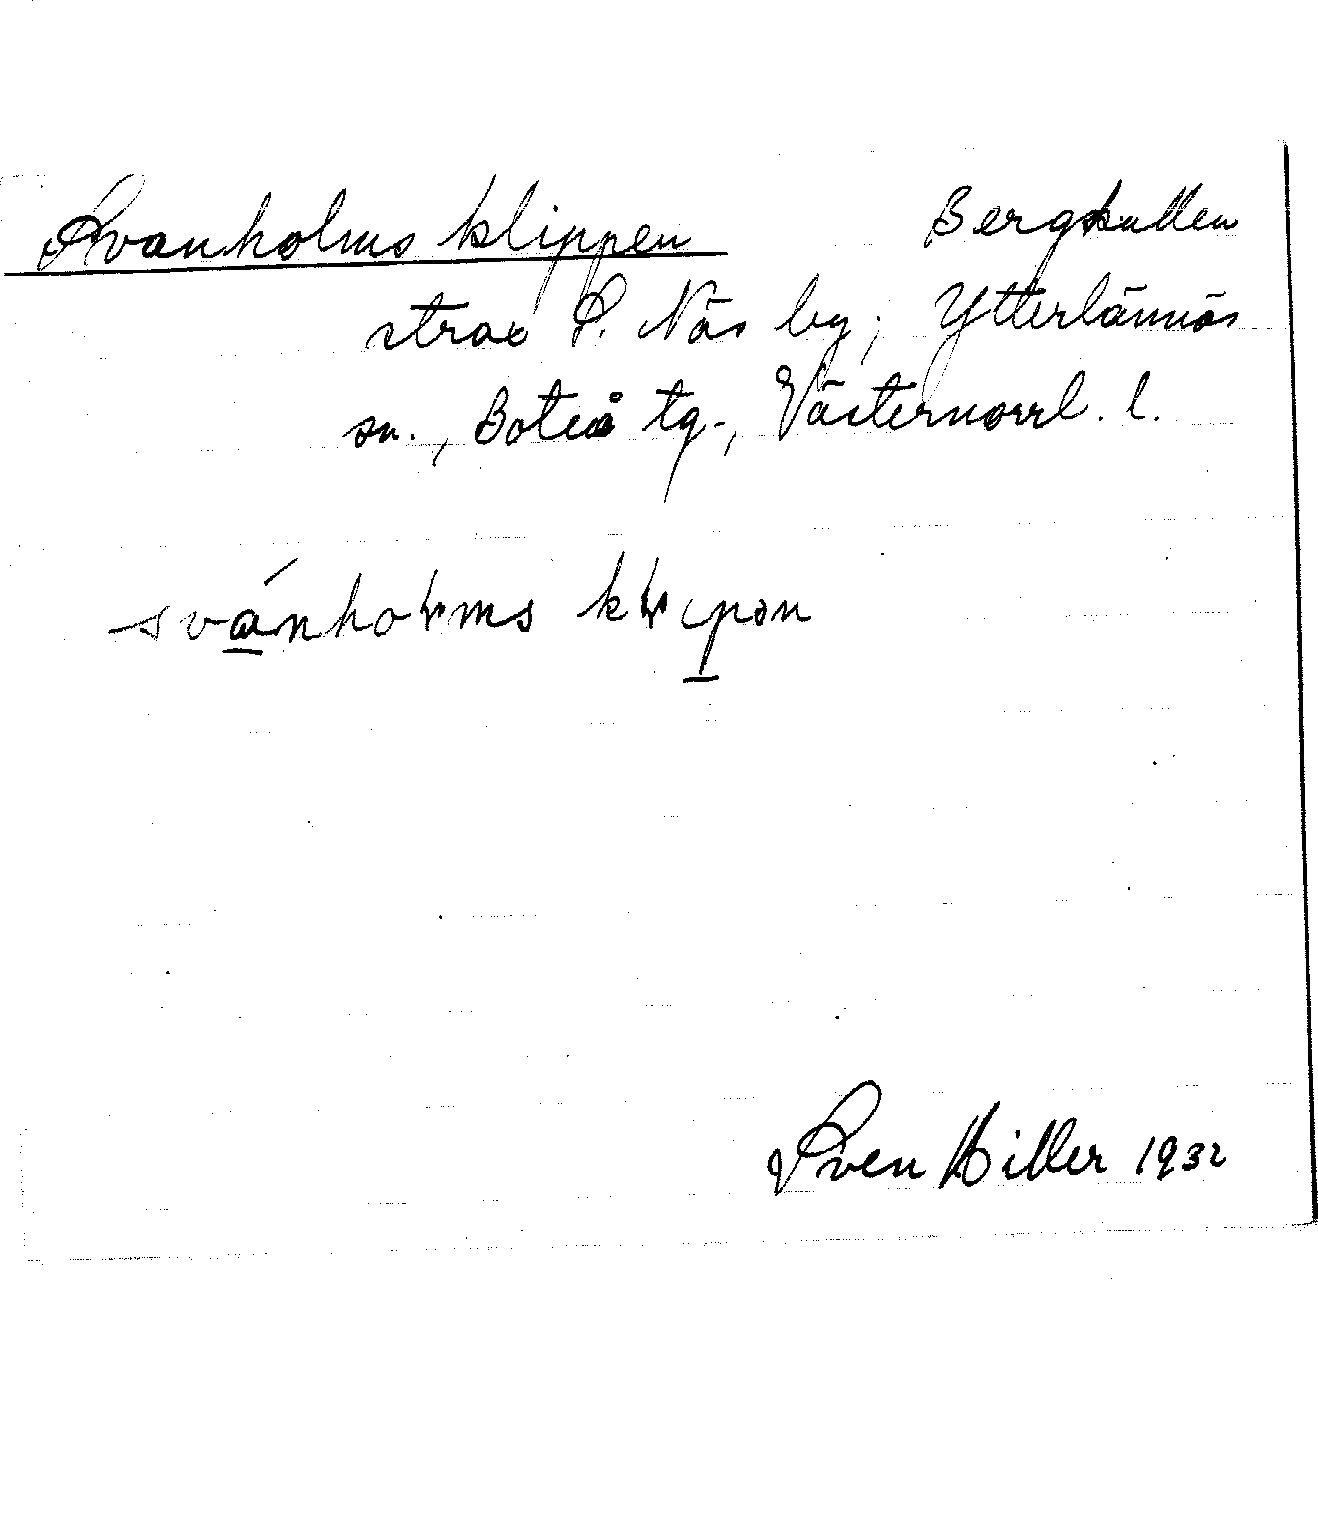 Svanholms klippen Bergkullen
strax S. Näs by; Ytterlännäs
sn., Boteå tg., Västernorrl. l.
svánhoɽms kɽipən
Sven Hiller 1932